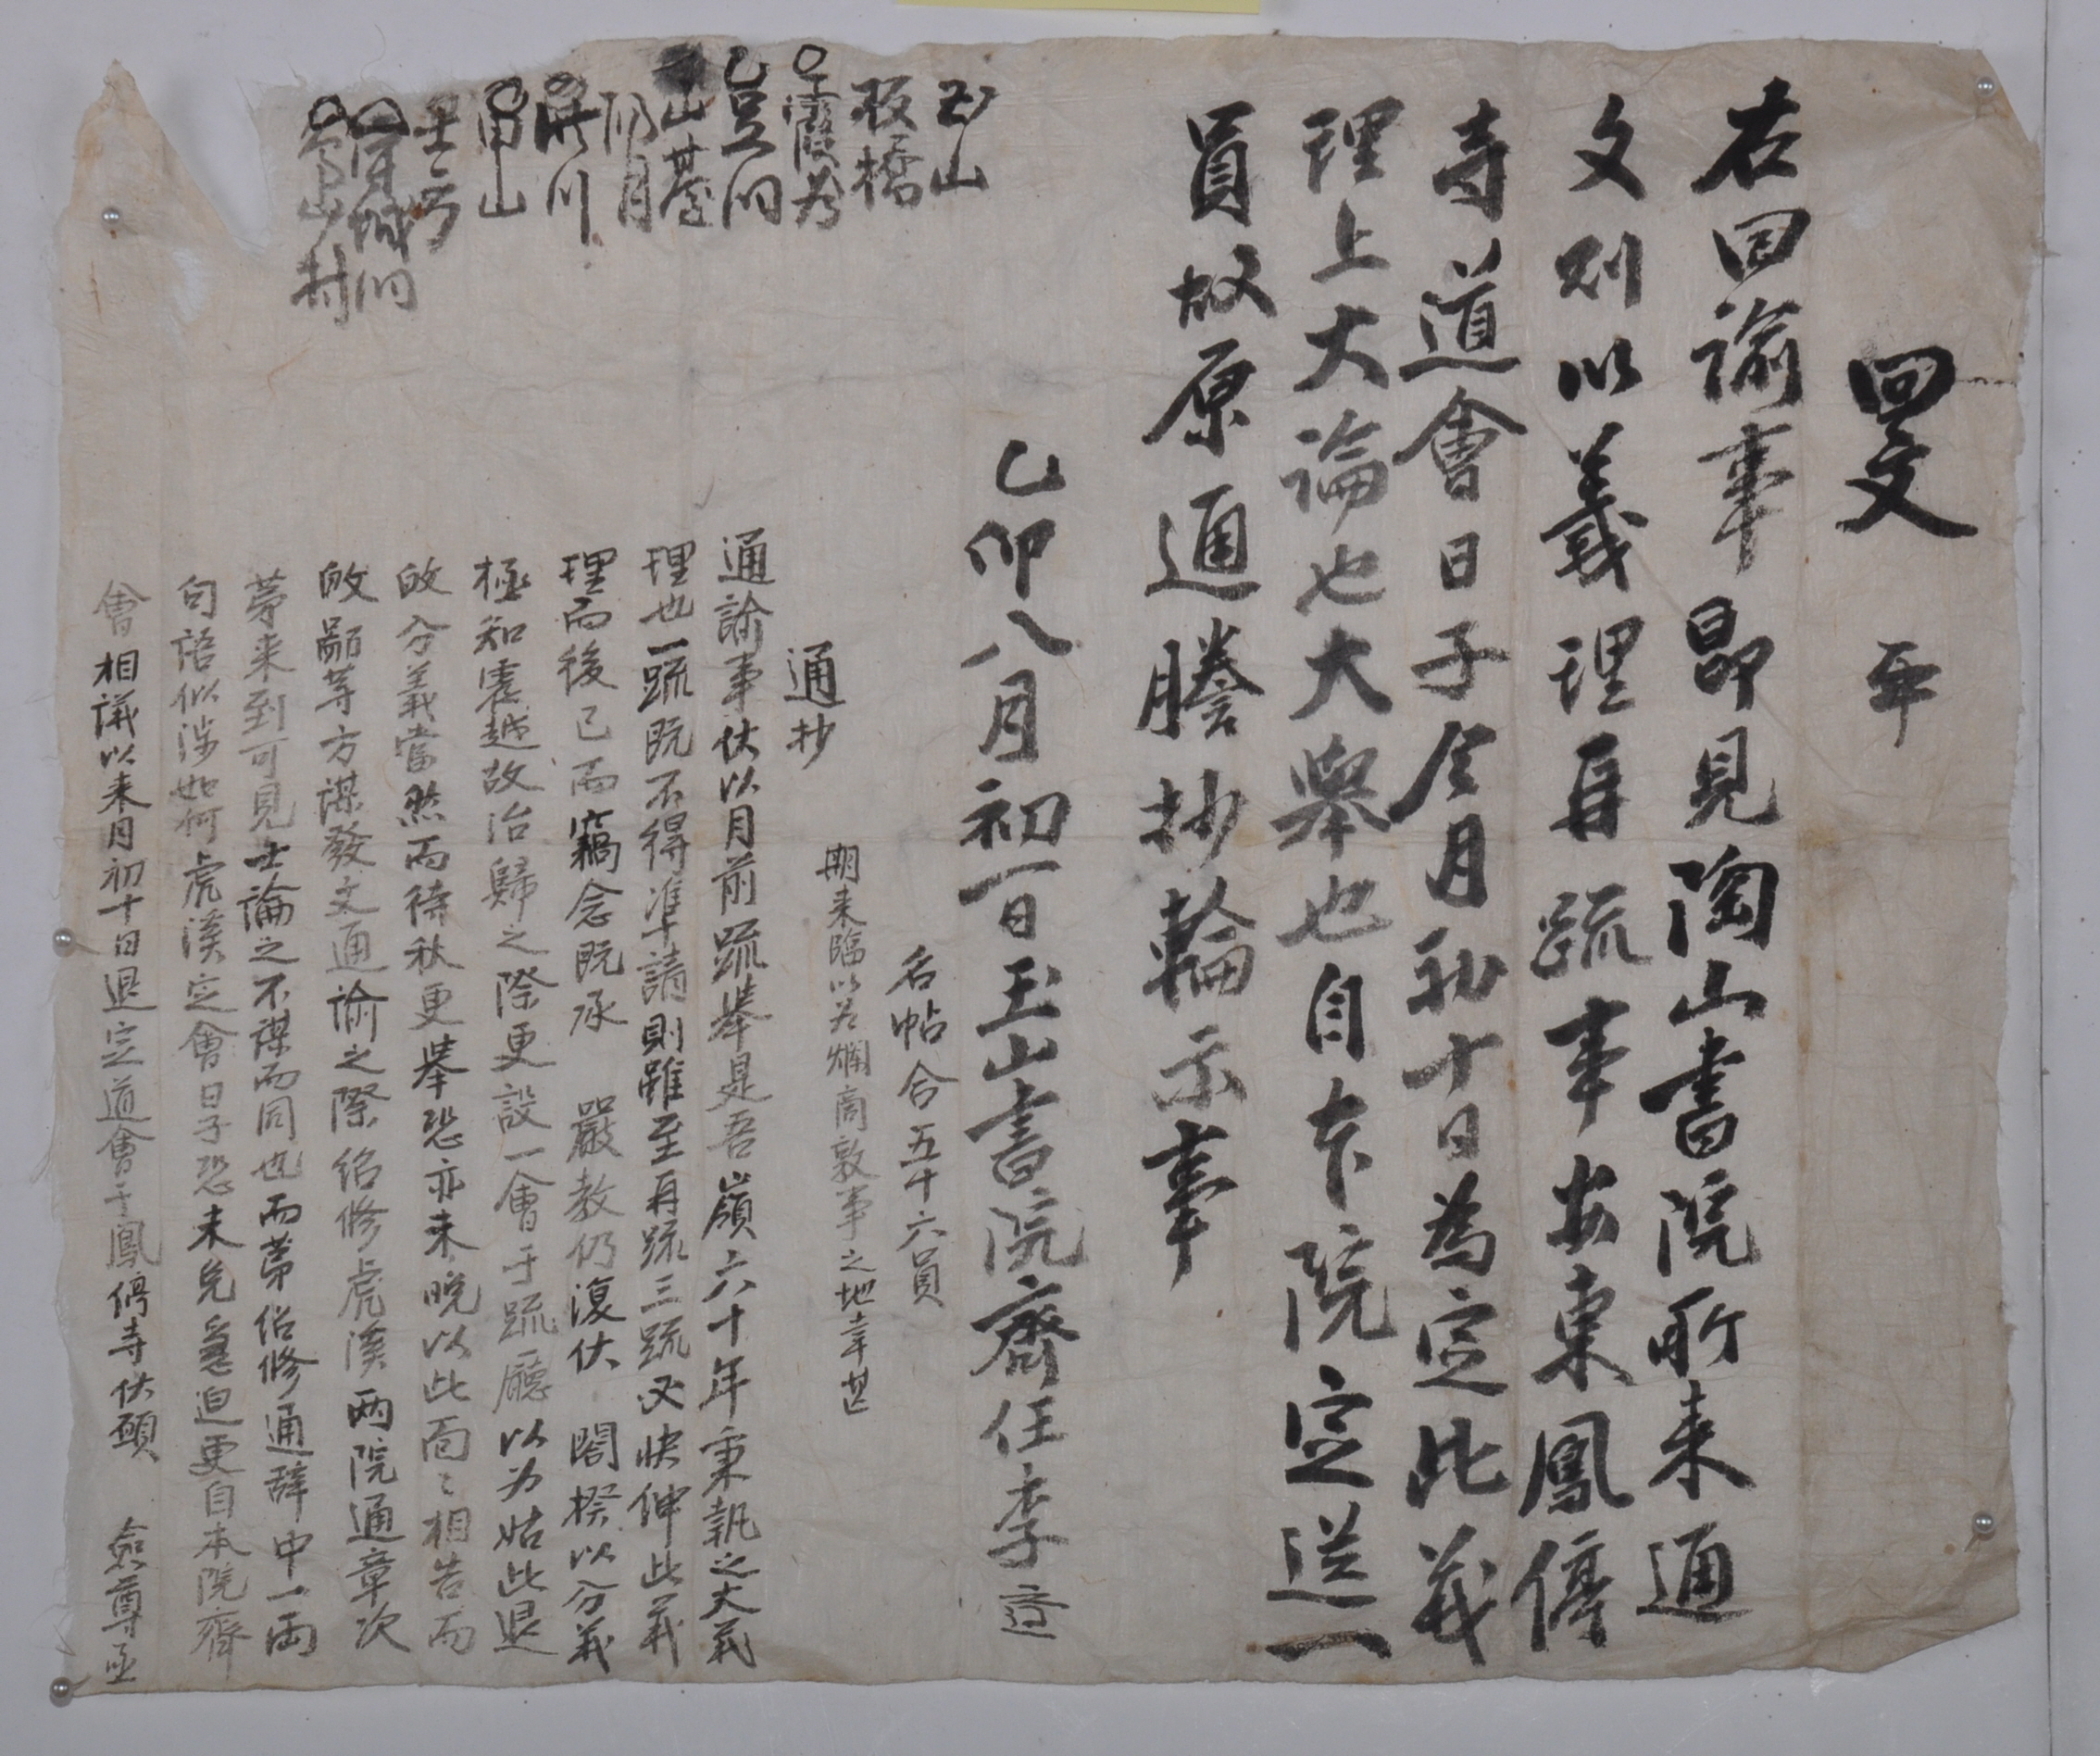 回文
右回諭事昂見陶山書院所来通
文則以義理再疏事安東鳳停
寺道會日子今月初十日為定此義
理上大論也大擧也自本院定送一
員故原通謄抄輪示事
乙卯八月初一日玉山書院齋任李
玉山
板橋
良洞
山基
明月
川
山
村
名帖合五十六員
通抄
通諭事伏以月前疏擧是吾嶺六十年秉執之大義
理也一疏既不得準請則雖至再疏三疏必快伸此義
理而後已而竊念既承 嚴教仍復伏 閤揆以分義
極知震越故治歸之際更設一會于疏廳以為姑此退
故分義當然而待秋更擧恐亦未晩以此面〻相告而
故鄙等方謀發文通諭之際紹修虎溪兩院通章次
第来到可見士論之不謀而同也而第紹修通辞中一兩
句語似涉如何虎溪定會日子恐未免急迫更自本院齊
會相議以来月初十日退定道會于鳳停寺伏願 僉尊亟
期来臨以為爛商敦事之地幸甚